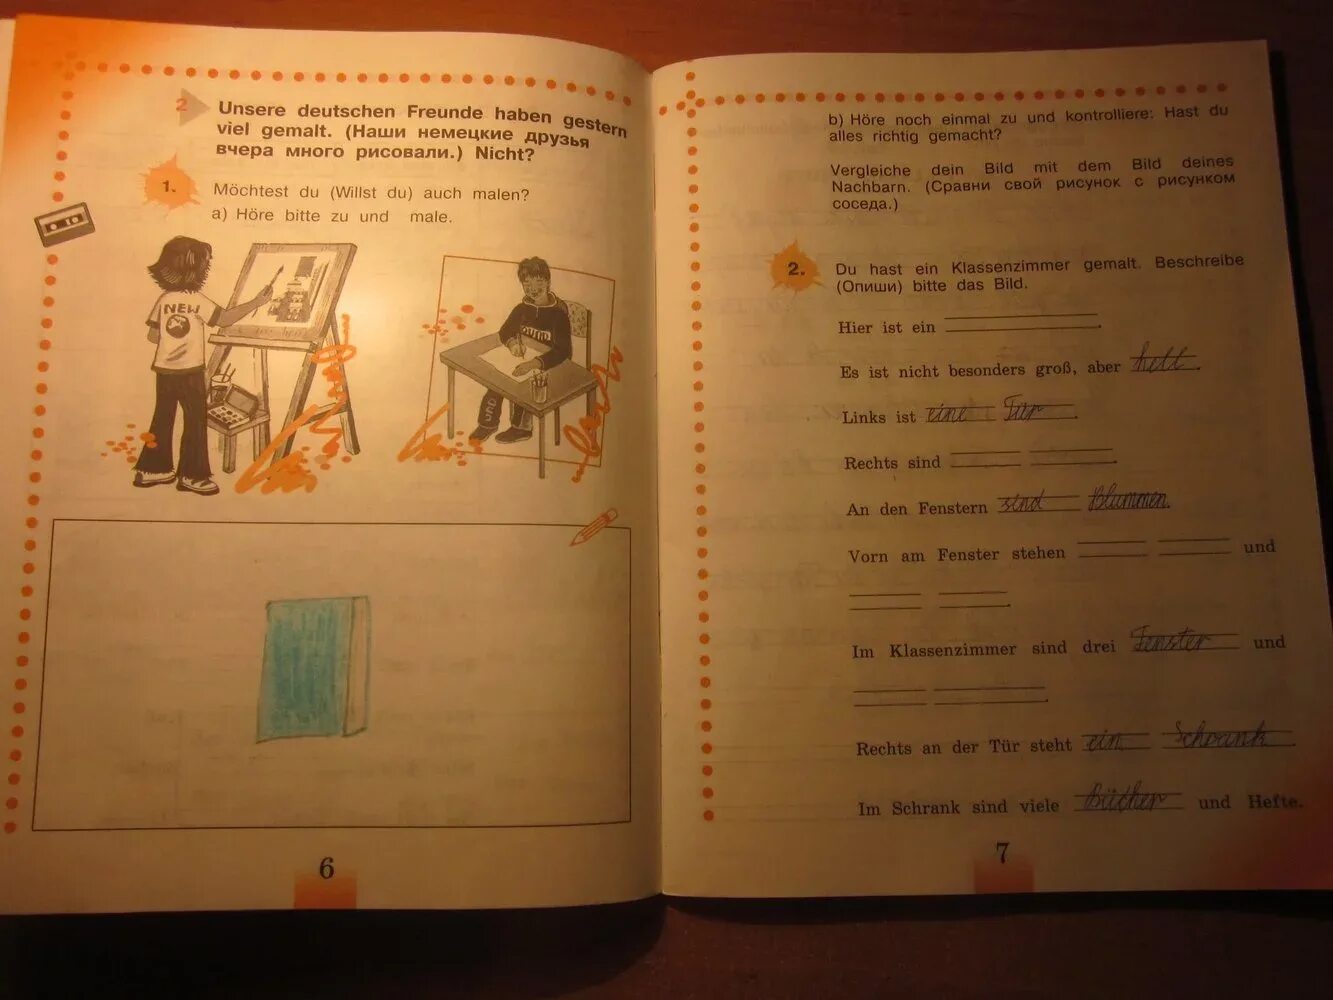 2 Unsere deutschen Freunde haben gestern
viel gemalt. (Наши немецкие друзья
вчера много рисовали.) Nicht?
1. Möchtest du (Willst du) auch malen?
a) Höre bitte zu und male.
NEW
6
b) Höre noch einmal zu und kontrolliere: Hast du
alles richtig gemacht?
Vergleiche dein Bild mit dem Bild deines
Nachbarn. (Сравни свой рисунок с рисунком
соседа.)
2. Du hast ein Klassenzimmer gemalt. Beschreibe
(Опиши) bitte das Bild.
Hier ist ein .
Es ist nicht besonders groß, aber hell.
Links ist eine Tür.
Rechts sind .
An den Fenstern sind Blummen.
Vorn am Fenster stehen und
.
Im Klassenzimmer sind drei Fenster und
.
Rechts an der Tür steht ein Schrank.
Im Schrank sind viele Bücher und Hefte.
7